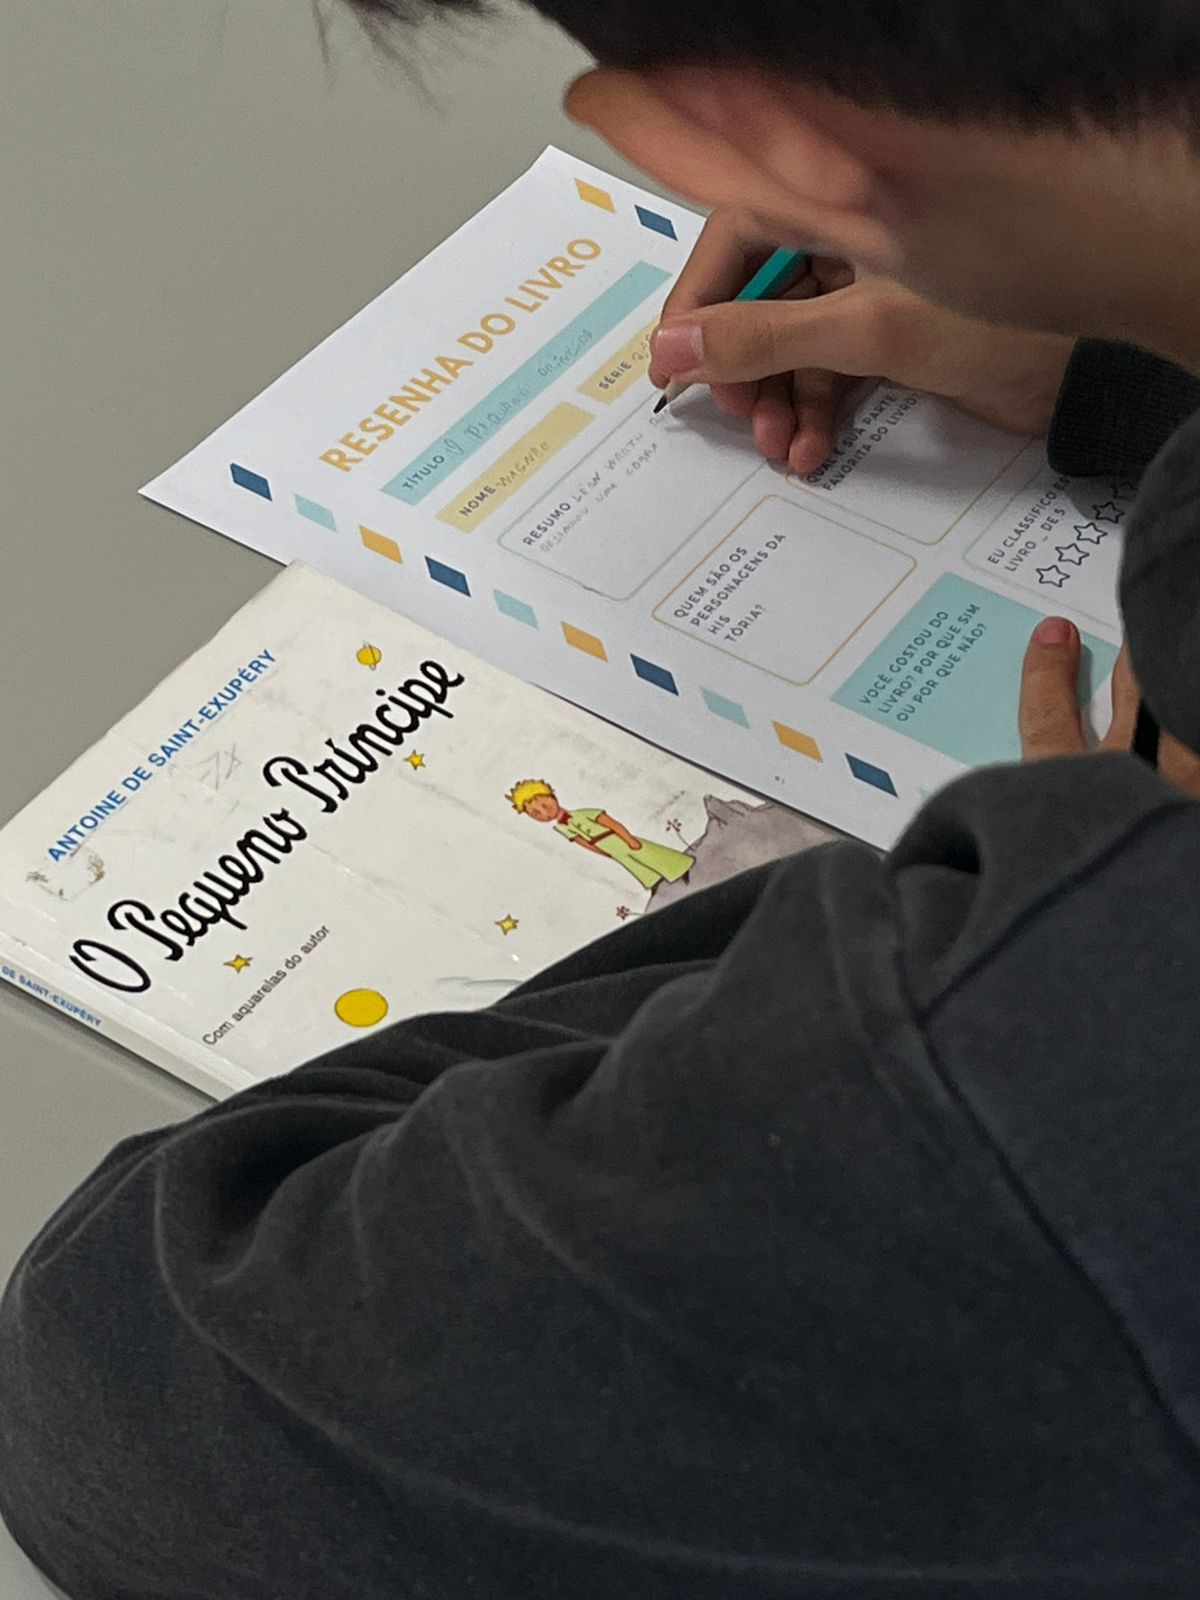 RESENHA DO LIVRO
TÍTULO O PEQUENO PRÍNCIPE
NOME WAGNER
SÉRIE
RESUMO LÉON WERTH
DESENHOU UMA COBRA
QUAL É SUA PARTE
FAVORITA DO LIVRO?
QUEM SÃO OS
PERSONAGENS DA
HIS
TÓRIA?
EU CLASSIFICO ES
LIVRO _ DE 5
VOCÊ GOSTOU DO
LIVRO? POR QUE SIM
OU POR QUE NÃO?
ANTOINE DE SAINT-EXUPÉRY
O Pequeno Príncipe
Com aquarelas do autor
DE SAINT-EXUPÉRY